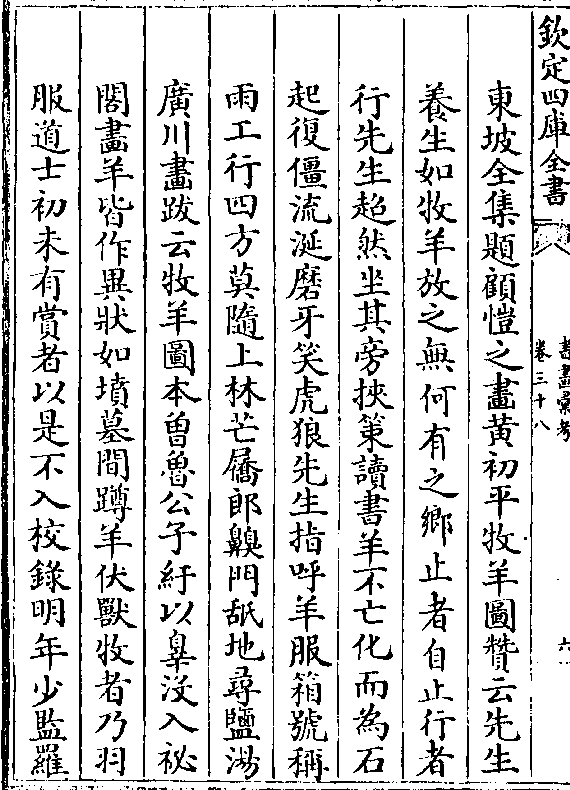 欽定四庫全書
書畫彙考
卷三十八
六
東坡全集題顧愷之畫黄初平牧羊圖贊云先生
養生如牧羊放之無何有之鄉止者自止行者
行先生超然坐其旁挾䇿讀書羊不亡化而為石
起復僵流涎磨牙笑虎狼先生指呼羊服箱號稱
雨工行四方莫隨上林芒屩郎齅門舐地尋鹽湯
廣川畫跋云牧羊圖本曾魯公子紆以辠没入祕
閣畫羊皆作異狀如墳墓間蹲羊伏獸牧者乃羽
服道士初未有賞者以是不入校錄明年少監羅